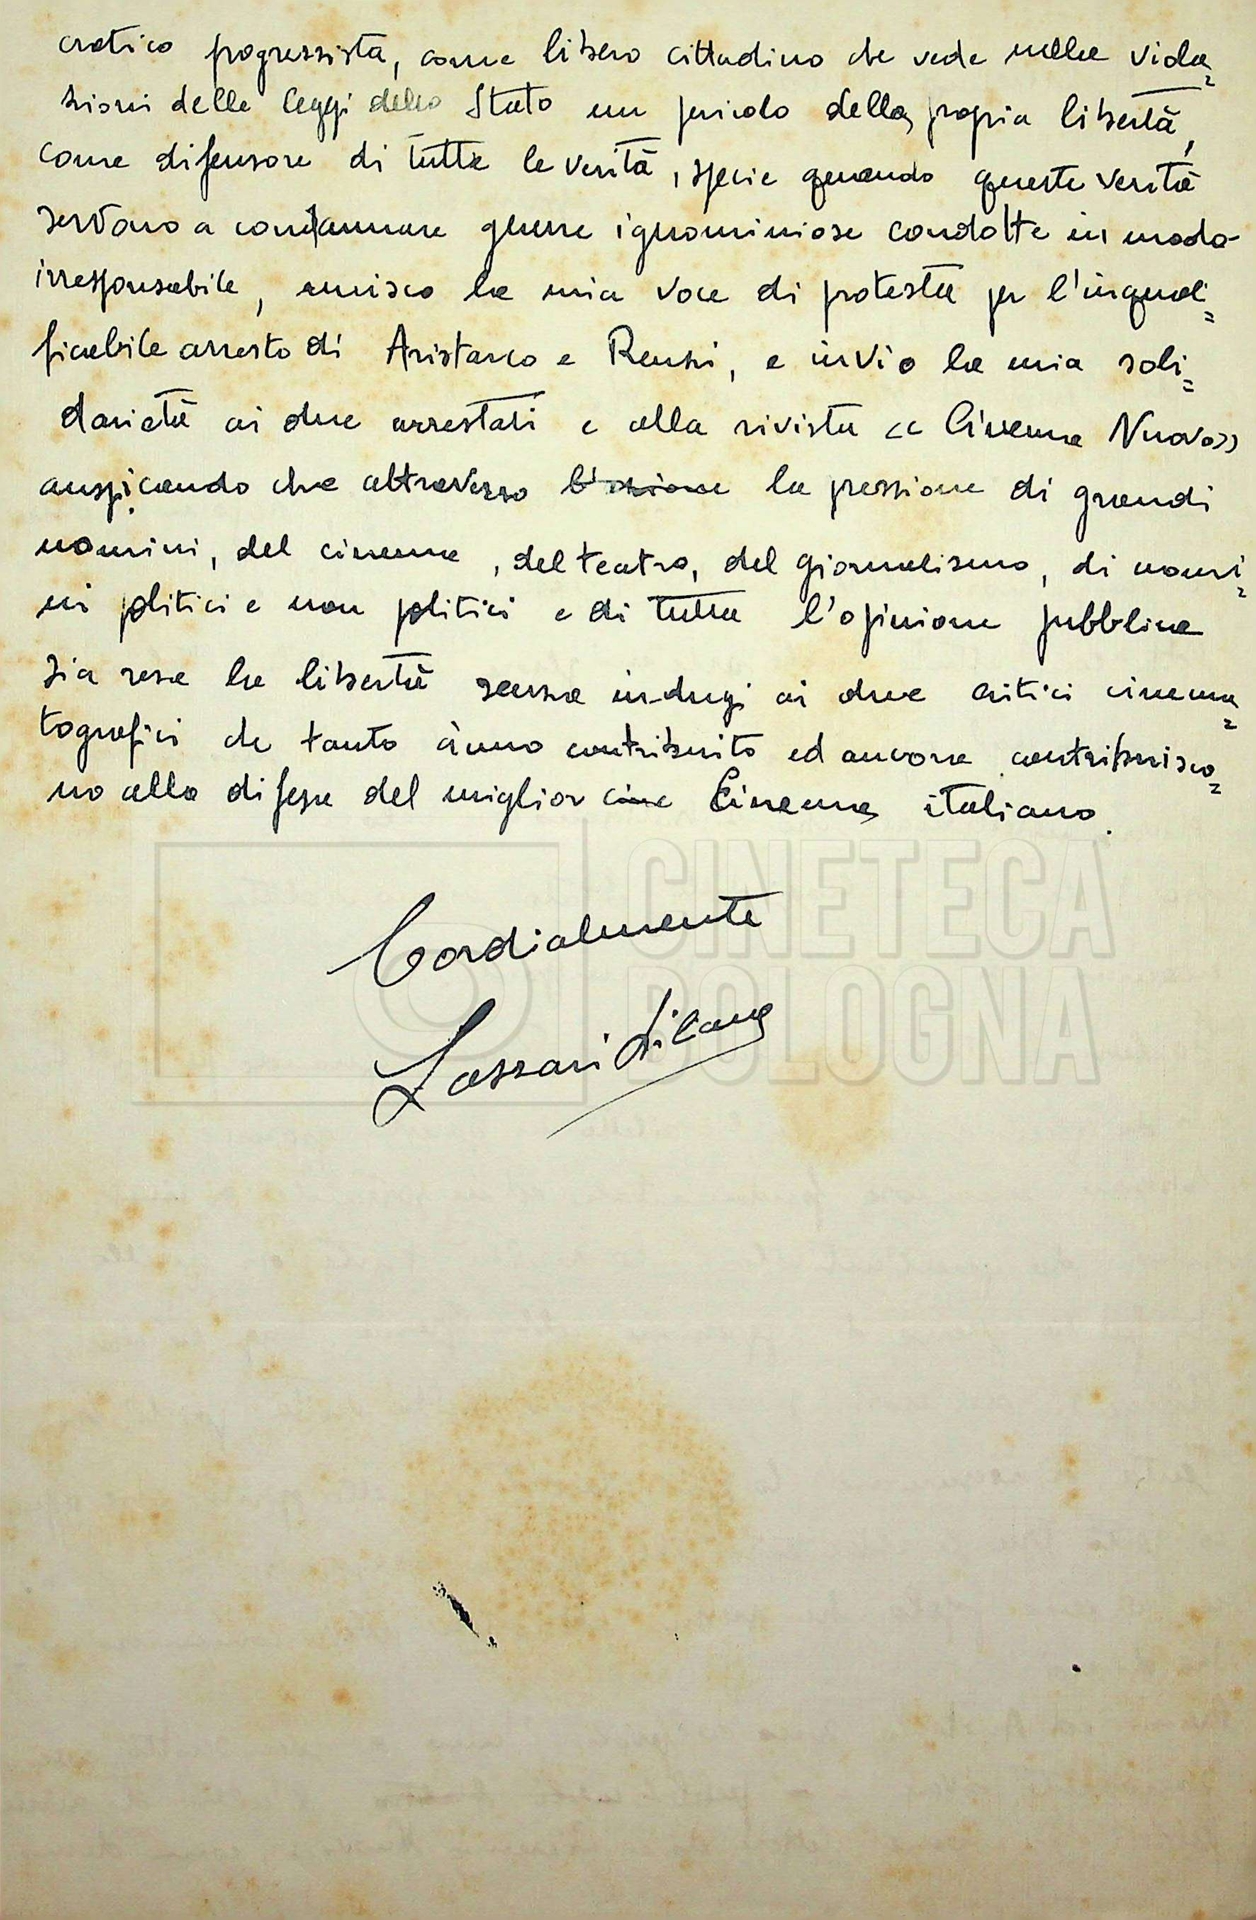 cratico progressista, come libero cittadino che vede nelle viola=
zioni delle leggi dello Stato un pericolo della propria libertà,
come difensore di tutte le verità, specie quando queste verità
servono a condannare guerre ignominiose condotte in modo
irresponsabile, unisco la mia voce di protesta per l'inquali=
ficabile arresto di Aristarco e Renzi, e invio la mia soli=
darietà ai due arrestati e alla rivista << Cinema Nuovo>>
auspicando che attraverso l'azione la pressione di grandi
uomini, del cinema, del teatro, del giornalismo, di uomi=
ni politici e non politici e di tutta l'opinione pubblica
sia resa la libertà senza indugi ai due critici cinema=
tografici che tanto ànno contribuito ed ancora contribuisco=
no alla difesa del miglior cine Cinema italiano.
Cordialmente
Lazzari
CINETECA
BOLOGNA